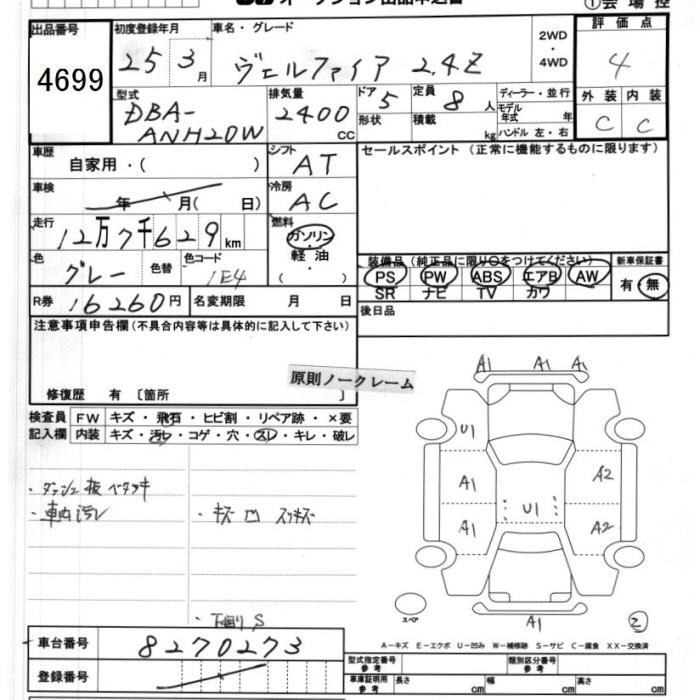 オークション出品申込書
①会場控
出品番号
4699
初度登録年月
25 3月
車名・グレード
ヴェルファイア 2.4Z
2WD
・
4WD
評価点
4
外装 内装
C C
型式
DBA-
ANH20W
排気量
2400
CC
ドア 5
形状
定員 8人
積載 kg
ディーラー・並行
モデル年式 年
ハンドル 左・右
車歴
自家用・( )
シフト
AT
セールスポイント(正常に機能するものに限ります)
車検
年 月( 日)
冷房
AC
走行
12万7千629km
燃料
ガソリン
・
軽油
・
( )
色
グレー
色替
色コード
1E4
装備品(純正品に限り○をつけてください)
PS PW ABS エアB AW
SR ナビ TV カワ
新車保証書
有・無
R券 16260円
名変期限 月 日
後日品
注意事項申告欄(不具合内容等は具体的に記入して下さい)
原則ノークレーム
修復歴 有〔箇所 〕
検査員
記入欄
FW キズ・飛石・ヒビ割・リペア跡・×要
内装 キズ・汚レ・コゲ・穴・スレ・キレ・破レ
・ダッシュ板ベタツキ
・車内汚レ
・キズ凹スリキズ
・下廻りS
A1 A1 A1
U1
A1 A2
U1
A1 A2
スペア
A1
2
A-キズ E-エクボ U-凹み W-補修跡 S-サビ C-腐食 XX-交換済
車台番号
8270273
登録番号
型式指定番号
参考
類別区分番号
参考
車庫証明用
参考
長さ cm 幅 cm 高さ cm